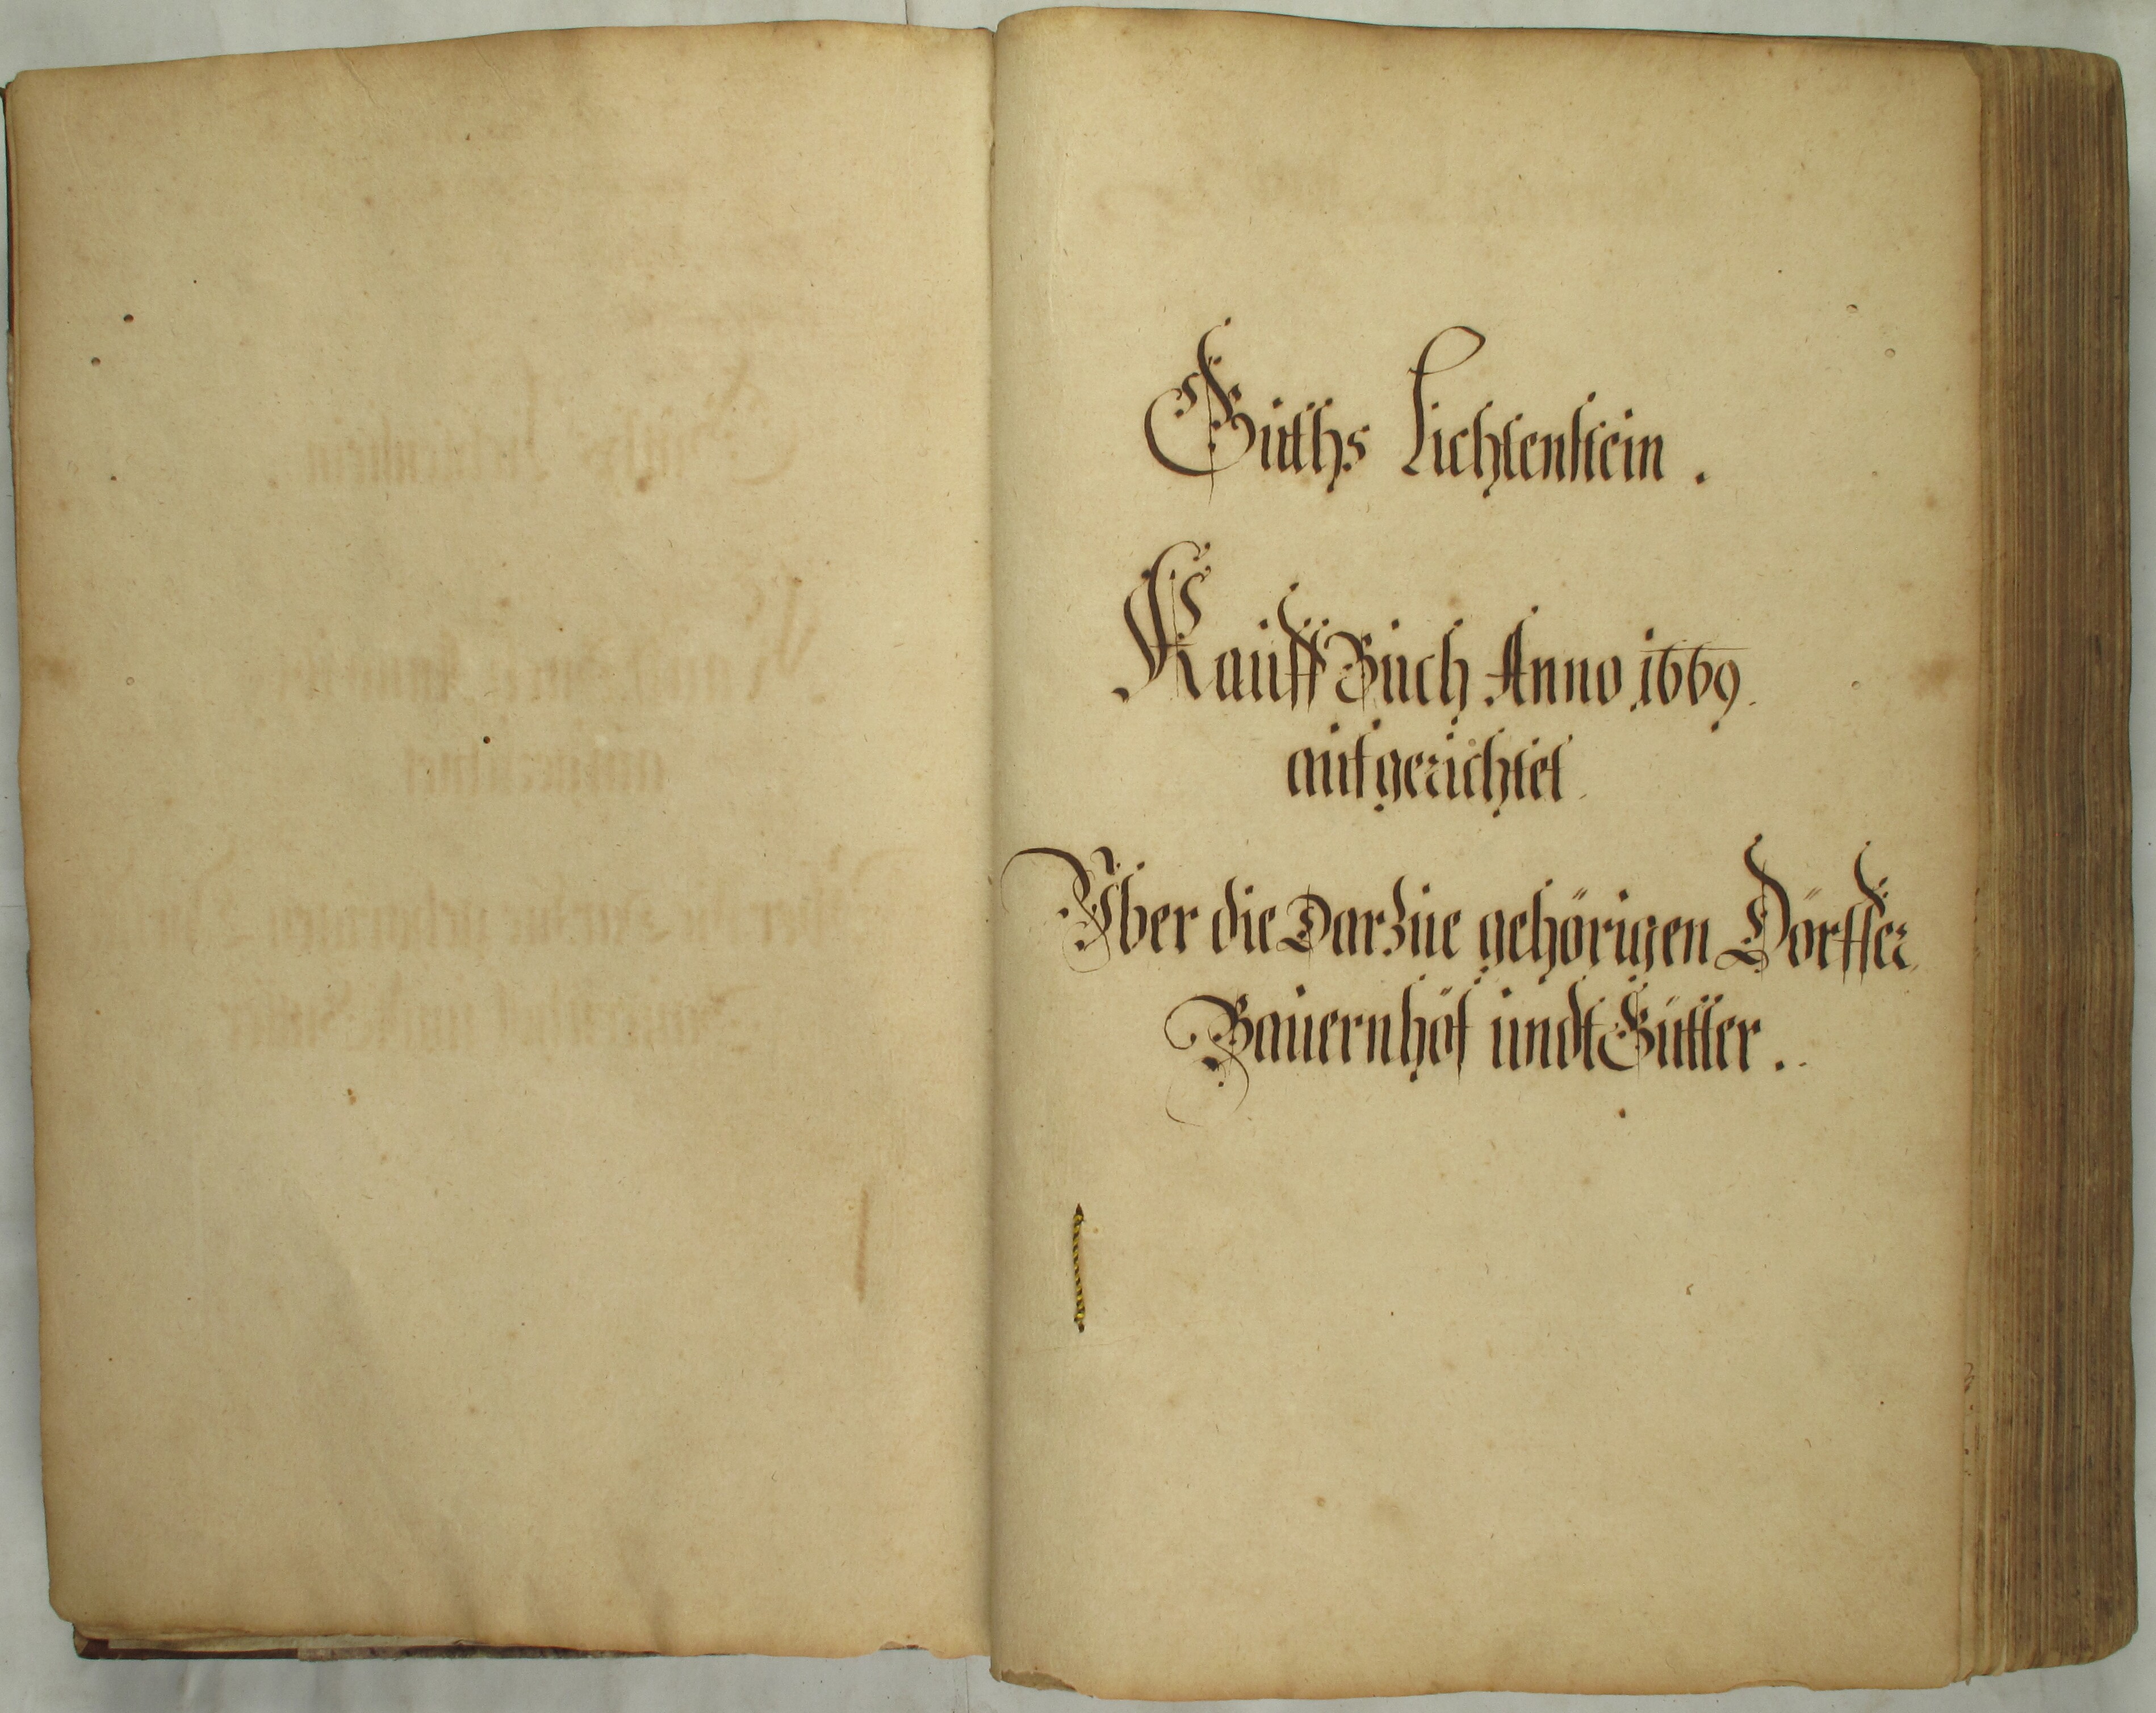 Guths Lichtenstein.
Kauff Buch Anno 1669.
aufgerichtet.
Über die Darzue gehörigen Dörffer,
Bauernhöf undt Gütter.